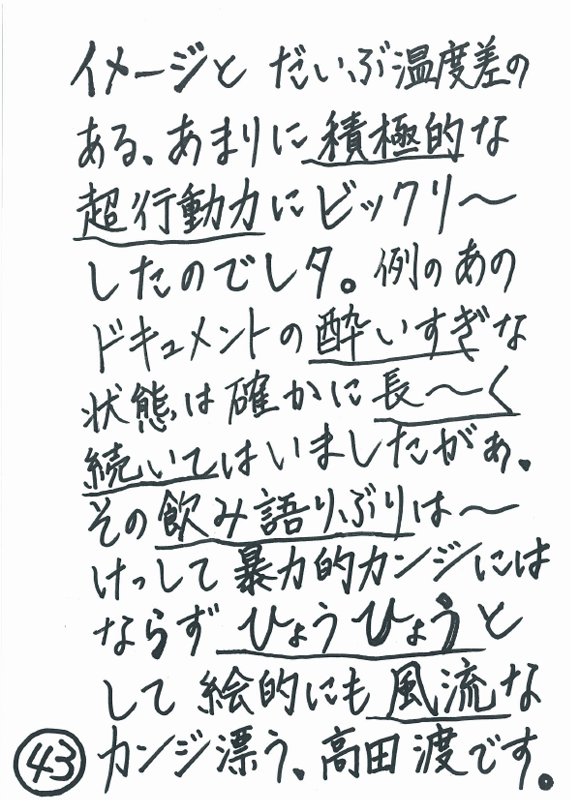 イメージと だいぶ温度差の
ある、あまりに積極的な
超行動力にビックリ〜
したのでしタ。例のあの
ドキュメントの酔いすぎな
状態は確かに長〜く
続いてはいましたがぁ、
その飲み語りぶりは〜
けっして暴力的カンジには
ならず ひょうひょうと
して 絵的にも風流な
㊸カンジ漂う、高田渡です。